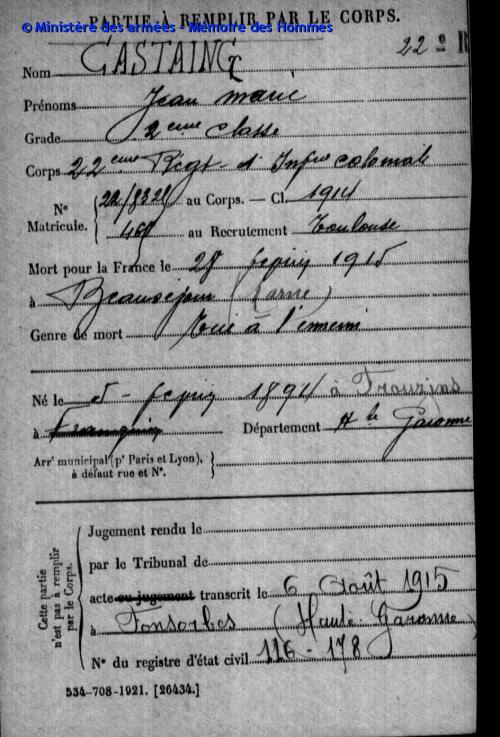 PARTIE À REMPLIR PAR LE CORPS.
© Ministère des armées - Mémoire des Hommes
22e R
Nom CASTAING
Prénoms Jean Marie
Grade 2eme classe
Corps 22eme Régt d'Infrie coloniale
N° Matricule. 22/8321 au Corps. — Cl. 1914
460 au Recrutement Toulouse
Mort pour la France le 28 février 1915
à Beauséjour (Marne)
Genre de mort Tué à l'ennemi
Né le 5 - février 1894 à Frouzins
à Département Hte Garonne
Arrt municipal (pr Paris et Lyon), à défaut rue et N°.
Cette partie n'est pas à remplir par le Corps.
Jugement rendu le
par le Tribunal de
acte ou jugement transcrit le 6 Août 1915
à Fonsorbes (Haute-Garonne)
N° du registre d'état civil 116 - 178
534-708-1921. [26434.]